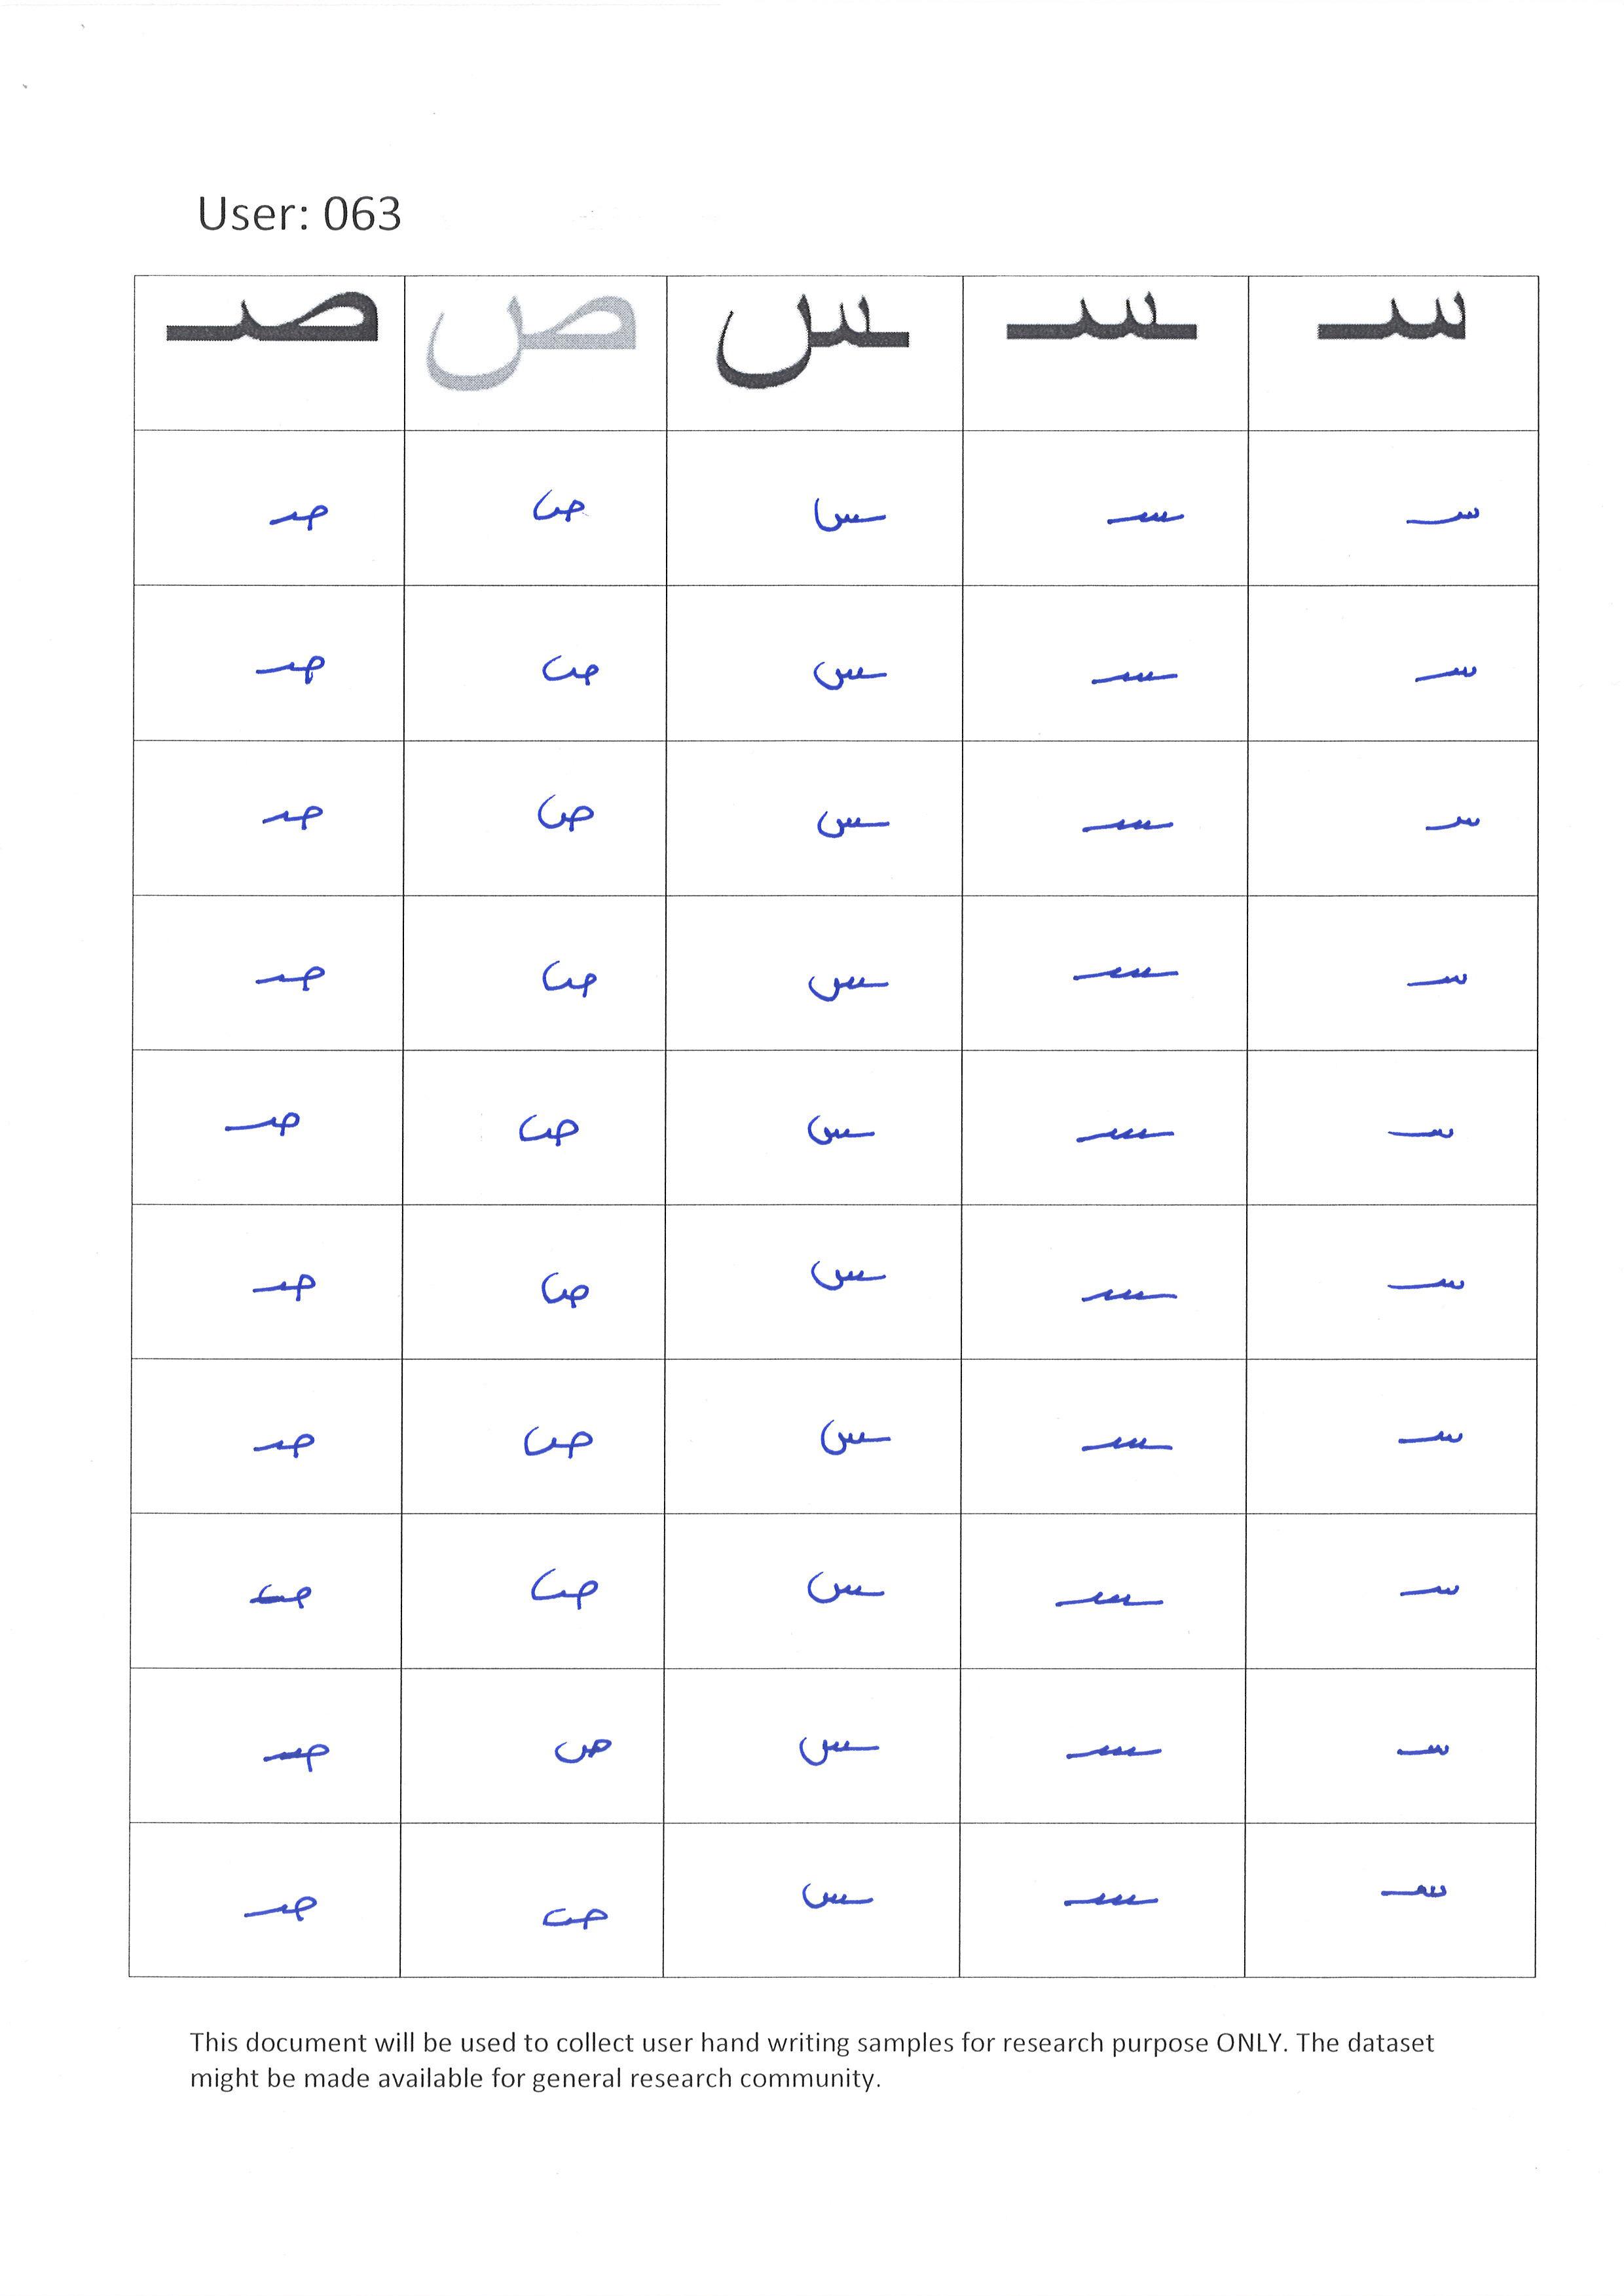 User: 063
سـ ـسـ ـس ص صـ
سـ ـسـ ـس ص صـ
سـ ـسـ ـس ص صـ
سـ ـسـ ـس ص صـ
سـ ـسـ ـس ص صـ
سـ ـسـ ـس ص صـ
سـ ـسـ ـس ص صـ
سـ ـسـ ـس ص صـ
سـ ـسـ ـس ص صـ
سـ ـسـ ـس ص صـ
سـ ـسـ ـس ص صـ
This document will be used to collect user hand writing samples for research purpose ONLY. The dataset
might be made available for general research community.